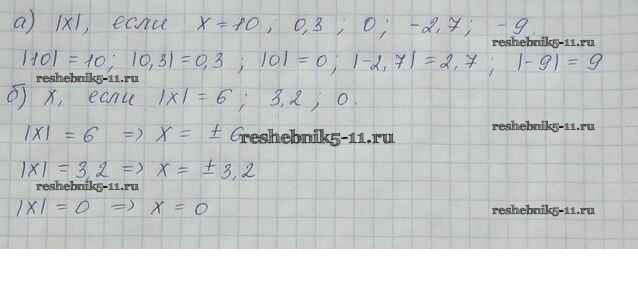 а) |x|, если x = 10; 0,3; 0; -2,7; -9.
reshebnik5-11.ru
|10| = 10; |0,3| = 0,3; |0| = 0; |-2,7| = 2,7; |-9| = 9
reshebnik5-11.ru
б) x, если |x| = 6; 3,2; 0.
reshebnik5-11.ru
|x| = 6 => x = ± 6
reshebnik5-11.ru
|x| = 3,2 => x = ± 3,2
reshebnik5-11.ru
|x| = 0 => x = 0
reshebnik5-11.ru